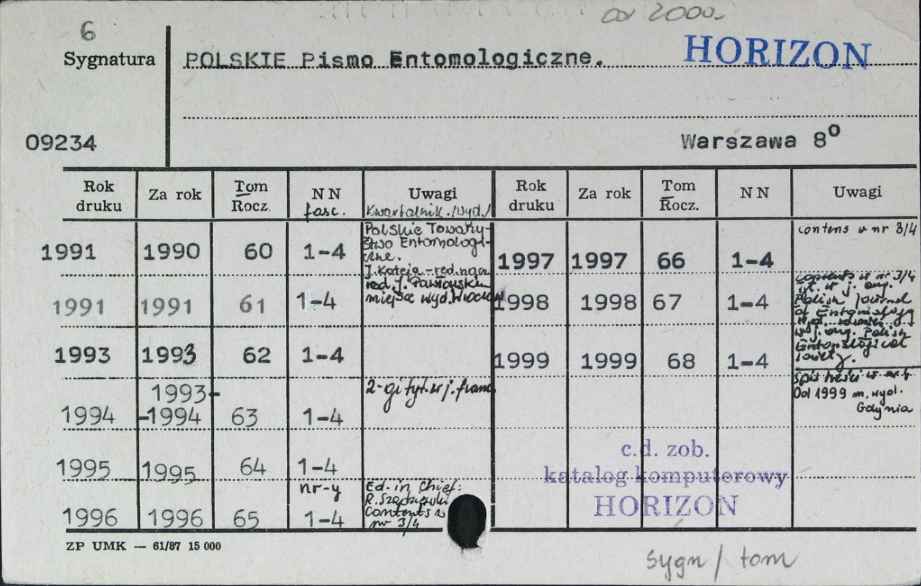 6
od 2000.
Sygnatura
POLSKIE Pismo Entomologiczne.
HORIZON
09234
Warszawa 8⁰
Rok druku Za rok Tom Rocz. NN fasc. Uwagi Kwartalnik./wyd./ Rok druku Za rok Tom Rocz. NN Uwagi
1991 1990 60 1-4
Polskie Towarzy-
stwo Entomologi-
czne.
J. Koteja - red. nacz.
red. J. Pawłowski
miejsce wyd. Wrocław
1997 1997 66 1-4 contens w nr 3/4
1991 1991 61 1-4
1998 1998 67 1-4
contents w nr 3/4
tyt. w j. ang.
Polish Journal
of Entomology
wyd. również
w j. ang. Polish
Entomological
Society.
1993 1993 62 1-4
1999 1999 68 1-4
Spis treści w nr 4
Od 1999 m. wyd.
Gdynia
1994 1993-
-1994 63 1-4 2-gi tyt. w j. franc.
1995 1995 64 1-4
nr-y
1996 1996 65 1-4
Ed. in Chief:
R. Szadziewski
Contents w
nr 3/4
c.d. zob.
katalog komputerowy
HORIZON
ZP UMK — 61/87 15 000
sygn / tom